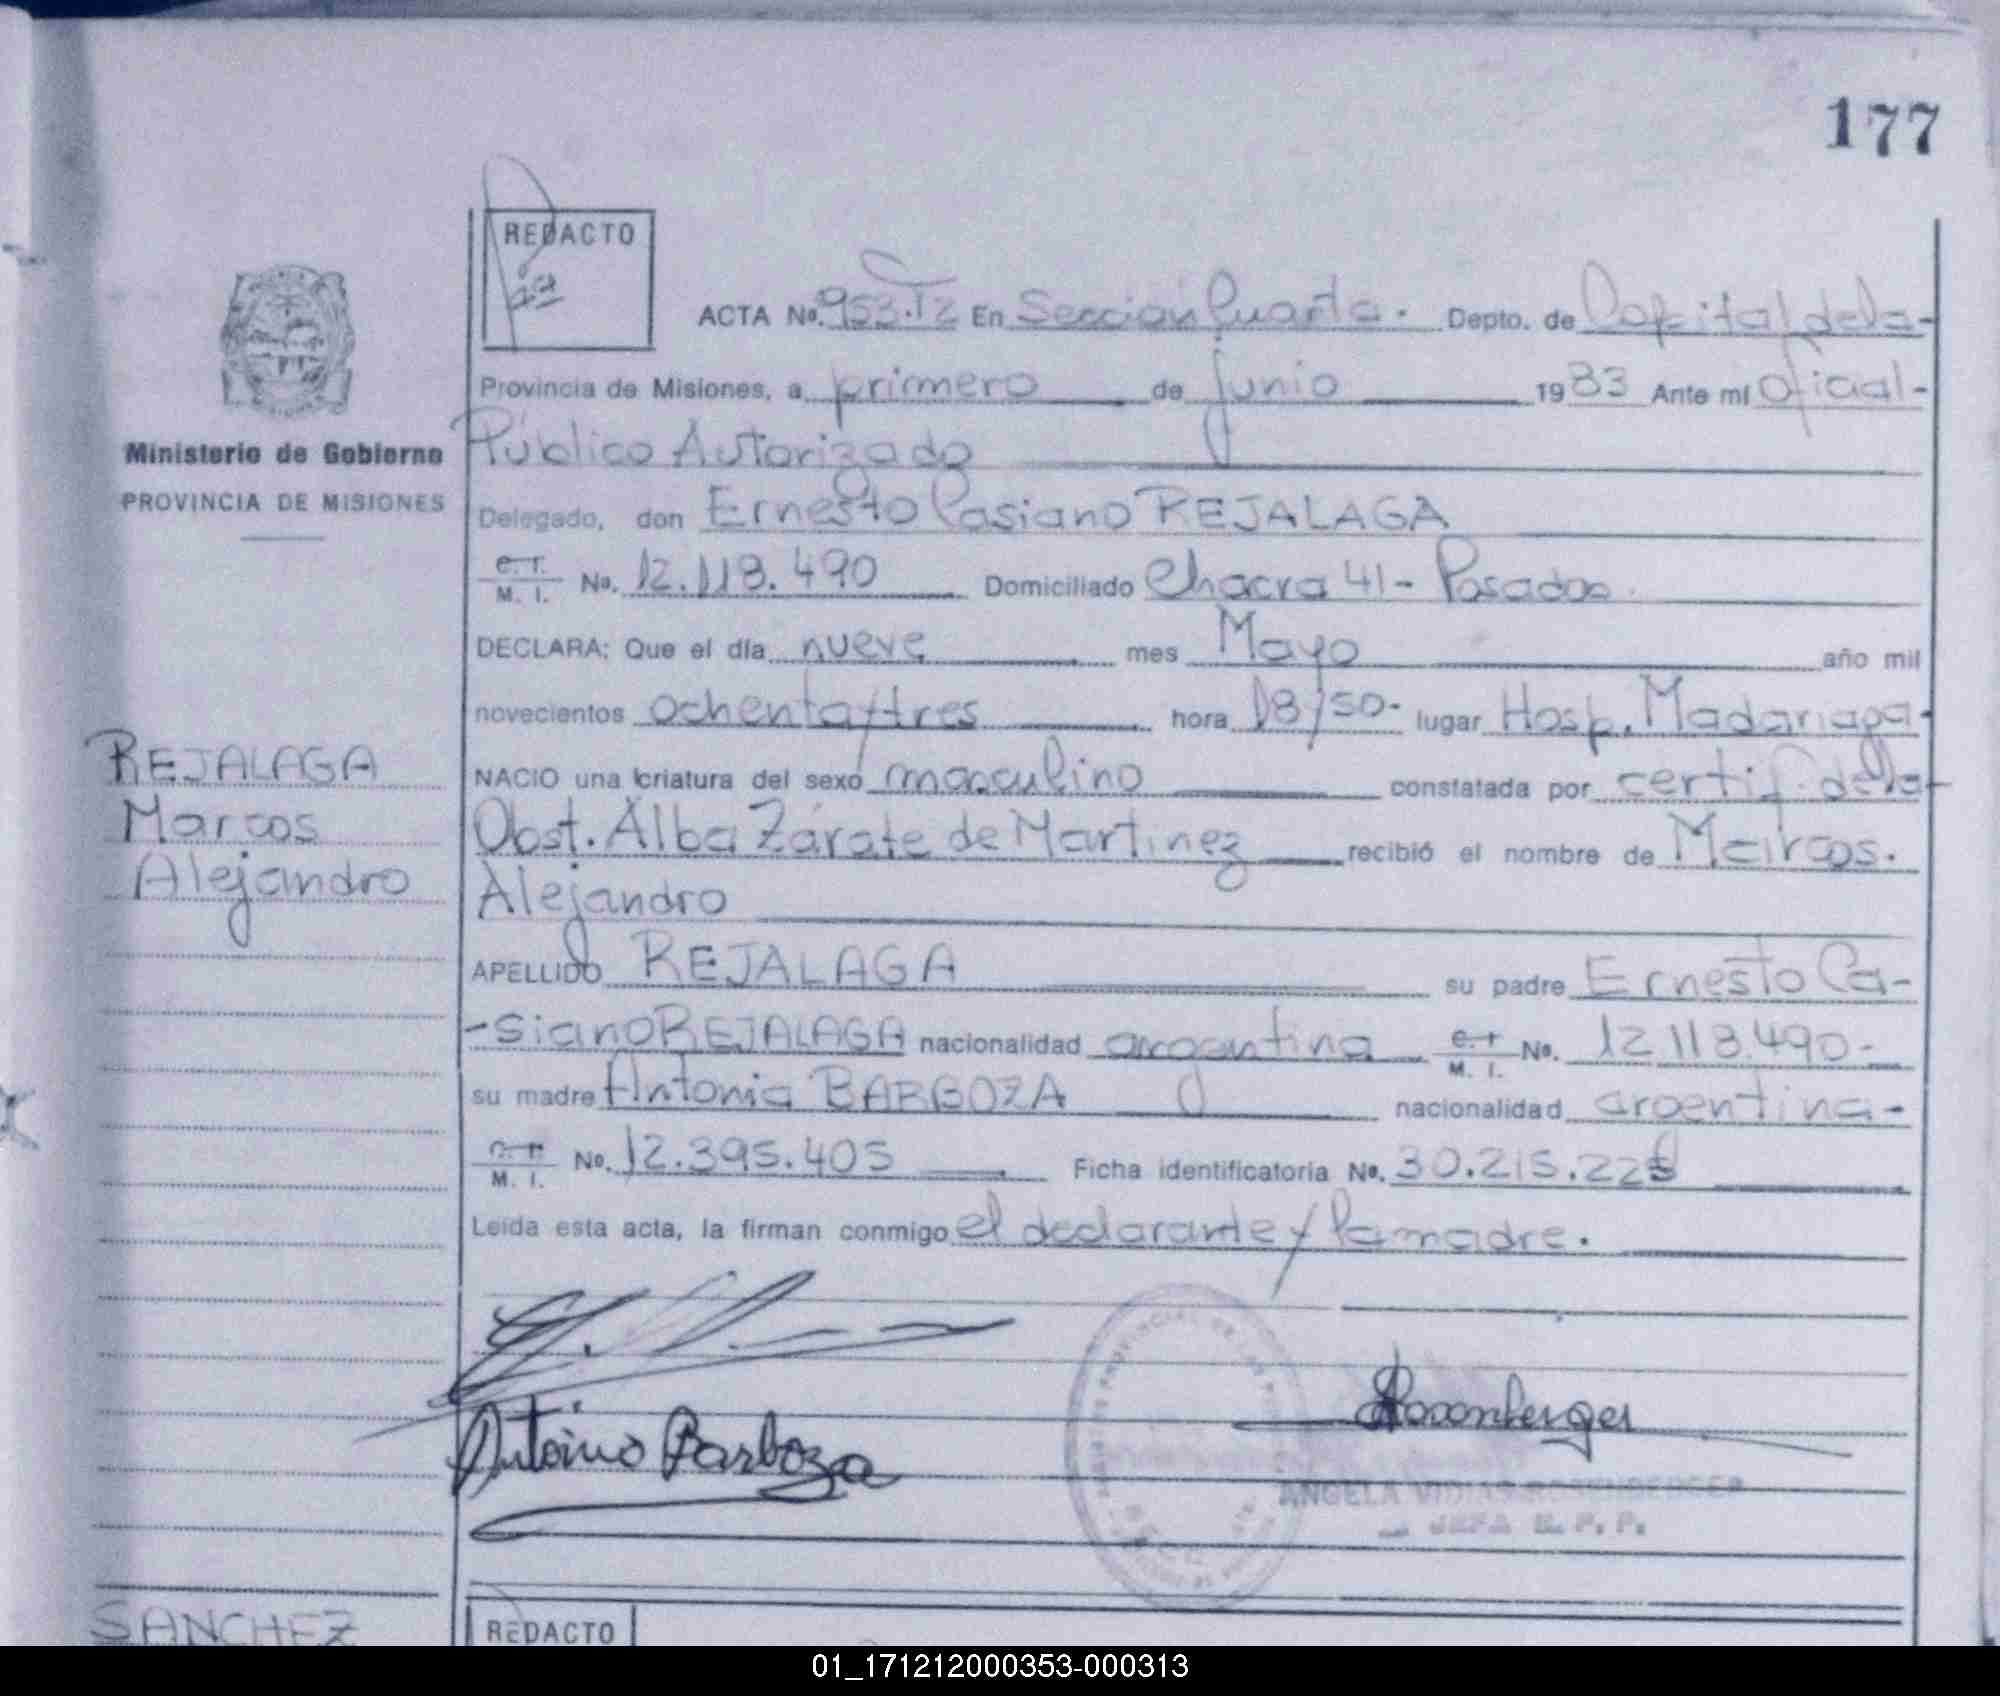 177
REDACTO
ACTA No. 953.T2 En Sección Cuarta. Depto. de Capital de la-
Provincia de Misiones, a primero de junio 1983 Ante mi oficial-
Público Autorizado
Ministerio de Gobierno
PROVINCIA DE MISIONES
Delegado, don Ernesto Casiano REJALAGA
M. I. No. 12.118.490 Domiciliado Chacra 41- Posadas.
DECLARA: Que el día nueve mes Mayo año mil
novecientos ochenta y tres hora 18/50- lugar Hosp. Madariaga-
REJALAGA
Marcos
Alejandro
NACIO una criatura del sexo masculino constatada por certif. de la-
Obst. Alba Zárate de Martinez recibió el nombre de Marcos.
Alejandro
APELLIDO REJALAGA su padre Ernesto Ca-
-siano REJALAGA nacionalidad argentina M. I. No. 12.118.490-
su madre Antonia BARBOZA nacionalidad argentina-
M. I. No. 12.395.405 Ficha identificatoria No. 30.215.22
Leída esta acta, la firman conmigo el declarante y la madre.
Antonia Barboza
Rosenberger
ANGELA ROSENBERGER
JEFA
SANCHEZ
REDACTO
01_171212000353-000313